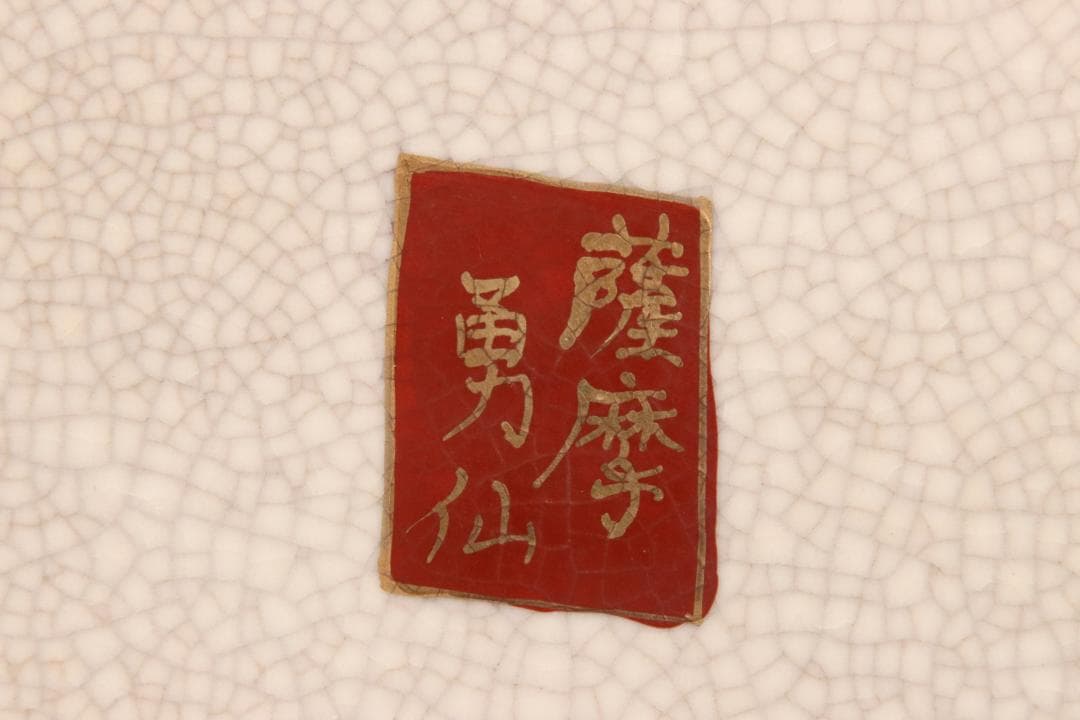 薩摩
勇仙